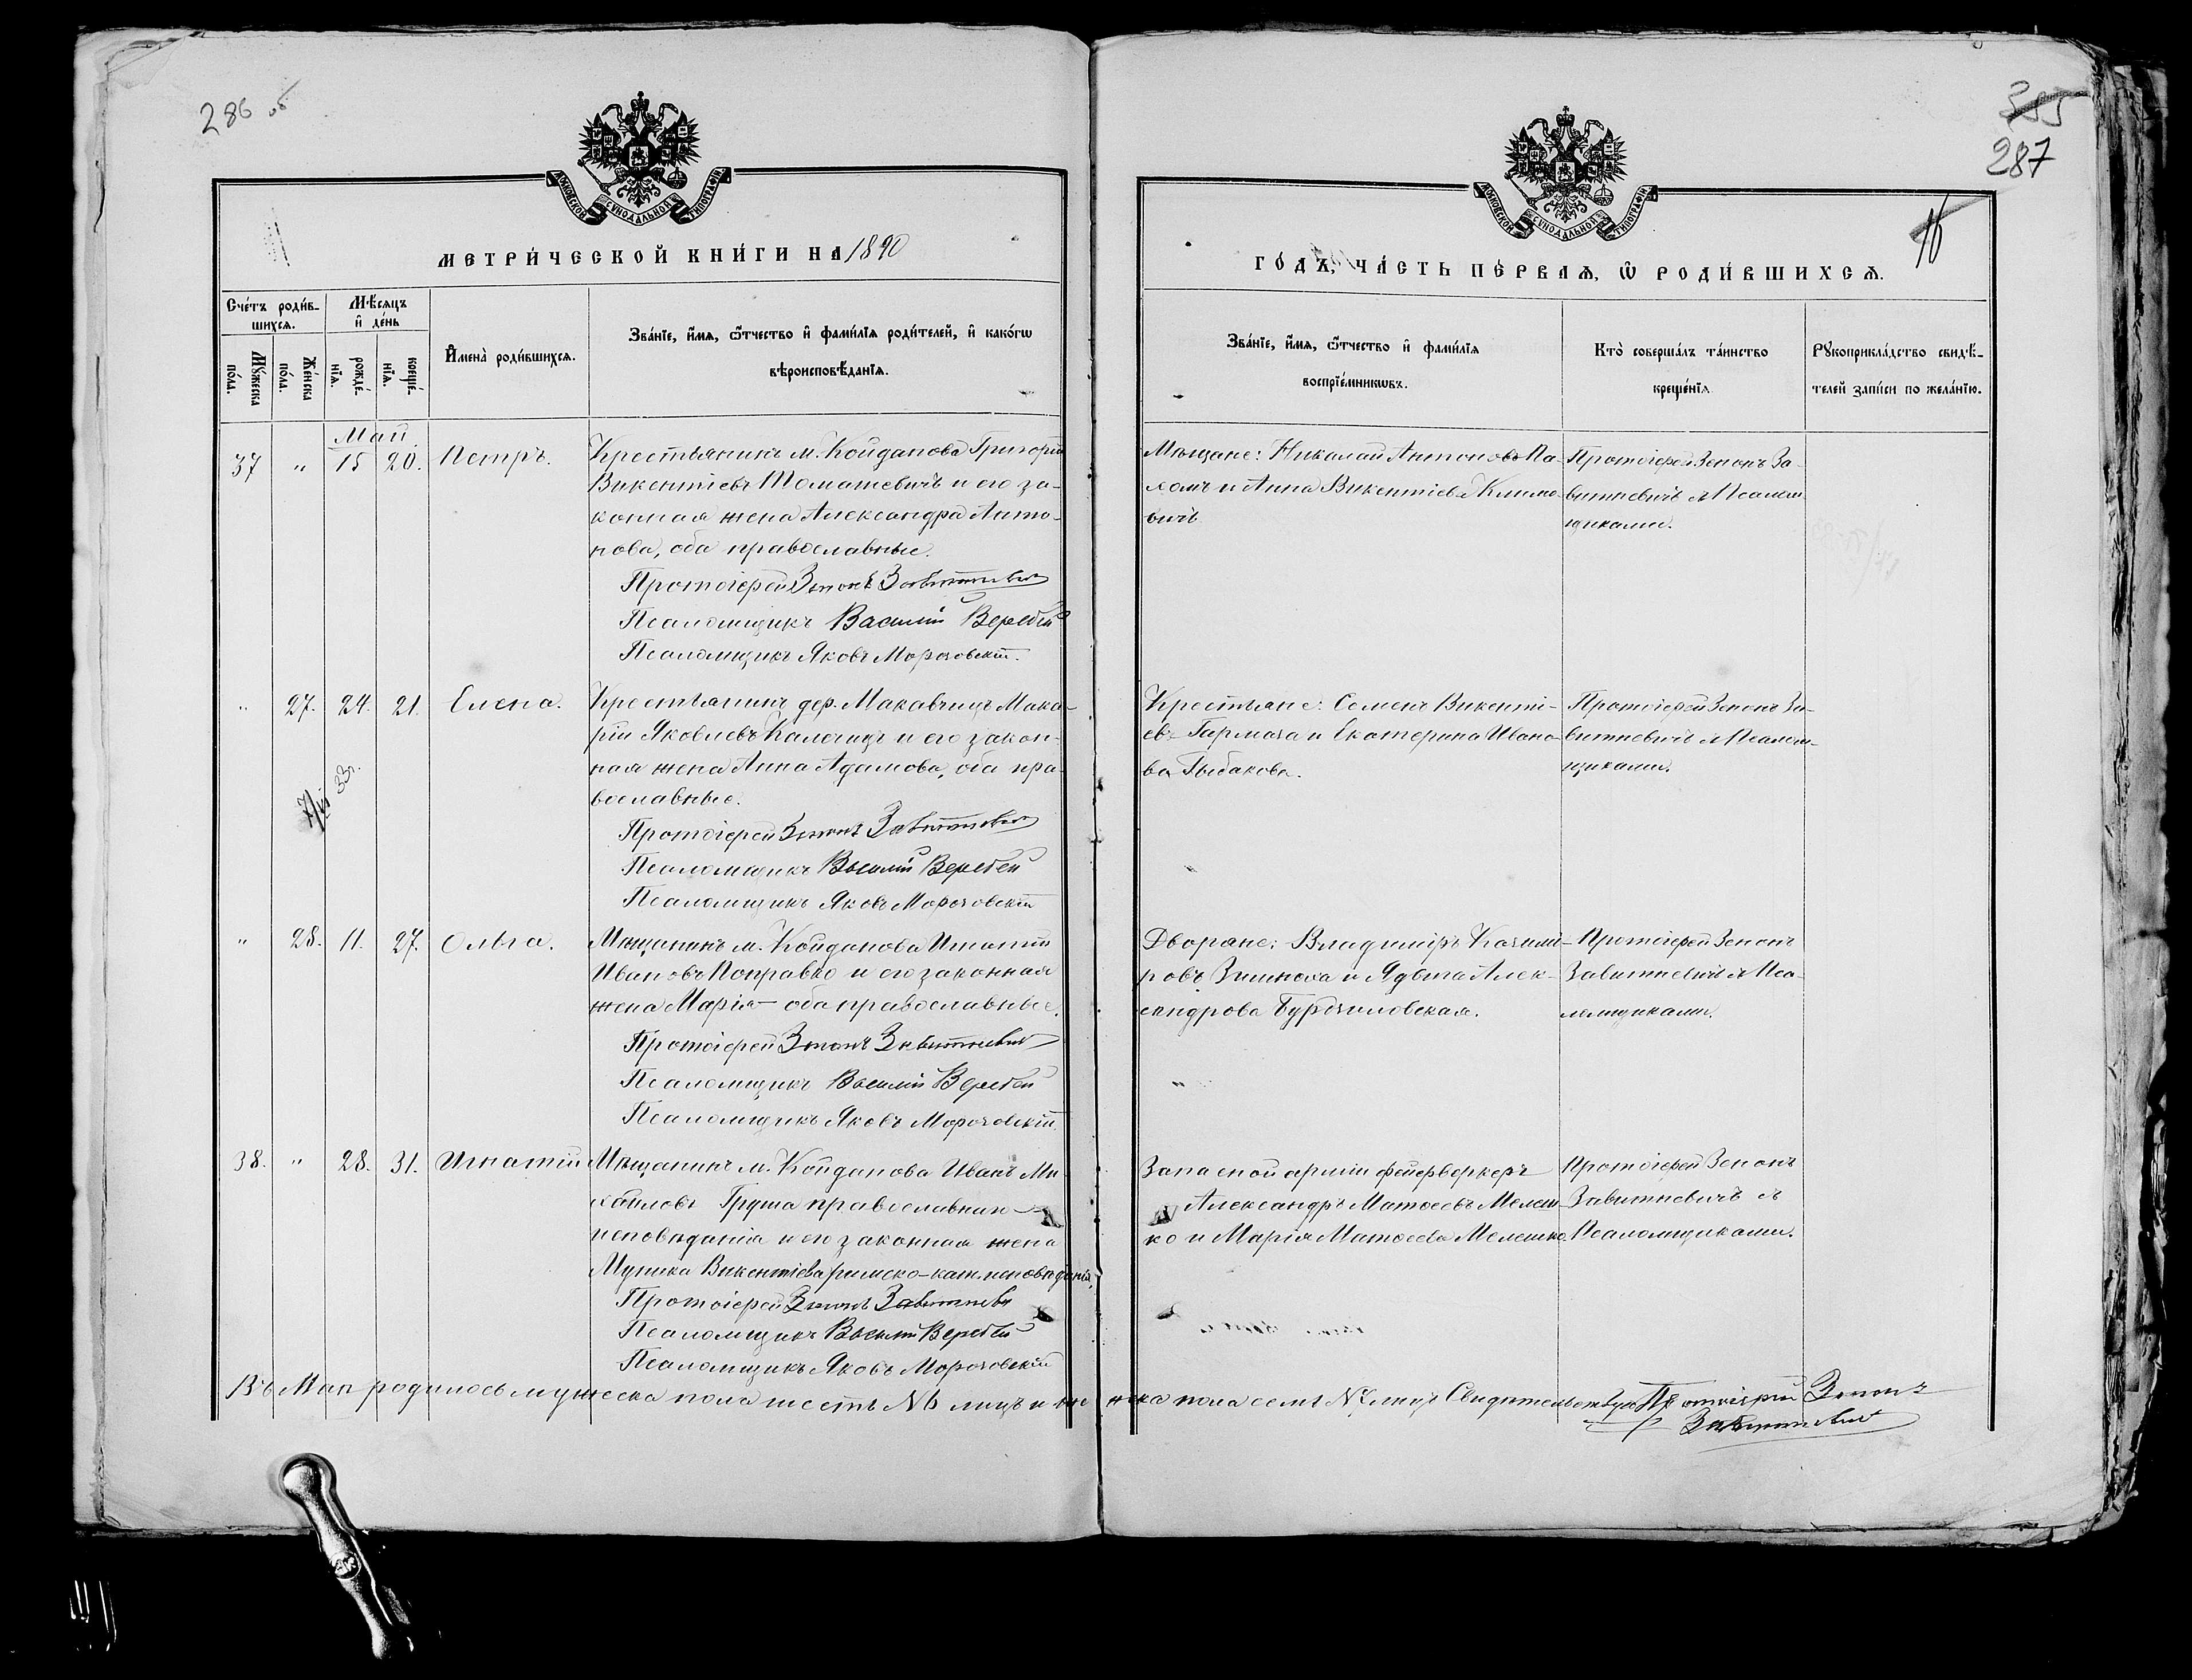 286 об
МОСКОВСКОЙ СУНОДАЛЬНОЙ ТИПОГРАФІИ
МЕТРИ́ЧЕСКОЙ КНИ́ГИ НА 1890
Сче́тъ роди́в-
шихсѧ.
Мѣ́сѧцъ
и҆ де́нь
Мꙋ́жеска
по́ла.
Же́нска
по́ла.
рожде́-
нїѧ.
креще́-
нїѧ.
И҆мена̀ роди́вшихсѧ.
Зва́нїе, и҆́мѧ, ѻ҆́тчество и҆ фами́лїѧ роди́телей, и҆ како́гѡ
вѣроисповѣ́данїѧ.
Май.
37 " 15 20. Петръ. Крестьянинъ м. Койданова Григорій
Викентіевъ Томашевичъ и его за-
конная жена Александра Анто-
нова, оба православные.
Протоіерей Зенонъ Завитневичъ
Псаломщикъ Василій Веребей
Псаломщикъ Яковъ Морозовскій.
" 27. 24. 21. Елена. Крестьянинъ дер. Макавчицъ Мака-
рій Яковлевъ и его закон-
ная жена Анна Адамова, оба пра-
вославные.
Протоіерей Зенонъ Завитневичъ
Псаломщикъ Василій Веребей
Псаломщикъ Яковъ Морозовскій
" 28. 11. 27. Ольга. Мѣщанинъ м. Койданова Игнатій
Ивановъ Поправко и его законная
жена Марія – оба православные.
Протоіерей Зенонъ Завитневичъ
Псаломщикъ Василій Веребей
Псаломщикъ Яковъ Морозовскій.
38. " 28. 31. Игнатій Мѣщанинъ м. Койданова Иванъ Ми-
хайловъ Груша православнаго
исповѣданія и его законная жена
Викентіева римско-кат. исповѣданія.
Протоіерей Зенонъ Завитневичъ
Псаломщикъ Василій Веребей
Псаломщикъ Яковъ Морозовскій
287
МОСКОВСКОЙ СУНОДАЛЬНОЙ ТИПОГРАФІИ
ГО́ДЪ, ЧА́СТЬ ПЕ́РВАѦ, Ѡ҆ РОДИ́ВШИХСѦ.
Зва́нїе, и҆́мѧ, ѻ҆́тчество и҆ фами́лїѧ
воспрїе́мникѡвъ.
Кто̀ соверша́лъ та́инство
креще́нїѧ
Рꙋкоприкла́дство свидѣ́-
телей за́писи по жела́нїю.
Мѣщане: Николай Антоновъ Па-
хомъ и Анна Викентіева Климо-
вичъ
Протоіерей Зенонъ За-
витневичъ съ Псалом-
щиками.
Крестьяне: Семенъ Викенті-
евъ Гармаза и Екатерина Ивано-
ва Рыбакова.
Протоіерей Зенонъ За-
витневичъ съ Псалом-
щиками.
Дворяне: Владиміръ Казими-
ровъ и Ядвига Алек-
сандрова
Протоіерей Зенонъ
Завитневичъ съ Пса-
ломщиками.
Запасной арміи фейерверкеръ
Александръ Матѳеевъ Мелеш-
ко и Марія Матѳеева Мелешко
Протоіерей Зенонъ
Завитневичъ съ
Псаломщиками.
Въ Маѣ родилось мужеска пола шесть №6 лицъ и женска пола семь №7 лицъ Свидѣтельствую Протоіерей Зенонъ
Завитневичъ